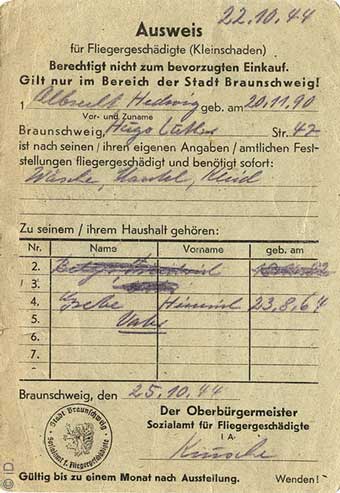 22.10.44
Ausweis
für Fliegergeschädigte (Kleinschaden)
Berechtigt nicht zum bevorzugten Einkauf.
Gilt nur im Bereich der Stadt Braunschweig!
1 Albrecht Hedwig geb. am 20.11.90
Vor- und Zuname
Braunschweig, Hugo Luther Str. 42
ist nach seinen / ihren eigenen Angaben / amtlichen Fest-
stellungen fliegergeschädigt und benötigt sofort:
Wäsche, Mantel, Kleid
Zu seinem / ihrem Haushalt gehören:
Nr. Name Vorname geb. am
2.
3.
4. Grebe Heinrich 23.8.64
5. Vater
6.
7.
Braunschweig, den 25.10.44
Der Oberbürgermeister
Sozialamt für Fliegergeschädigte
I A.
Stadt Braunschweig
Sozialamt f. Fliegergeschädigte
Gültig bis zu einem Monat nach Ausstellung. Wenden!
© ID